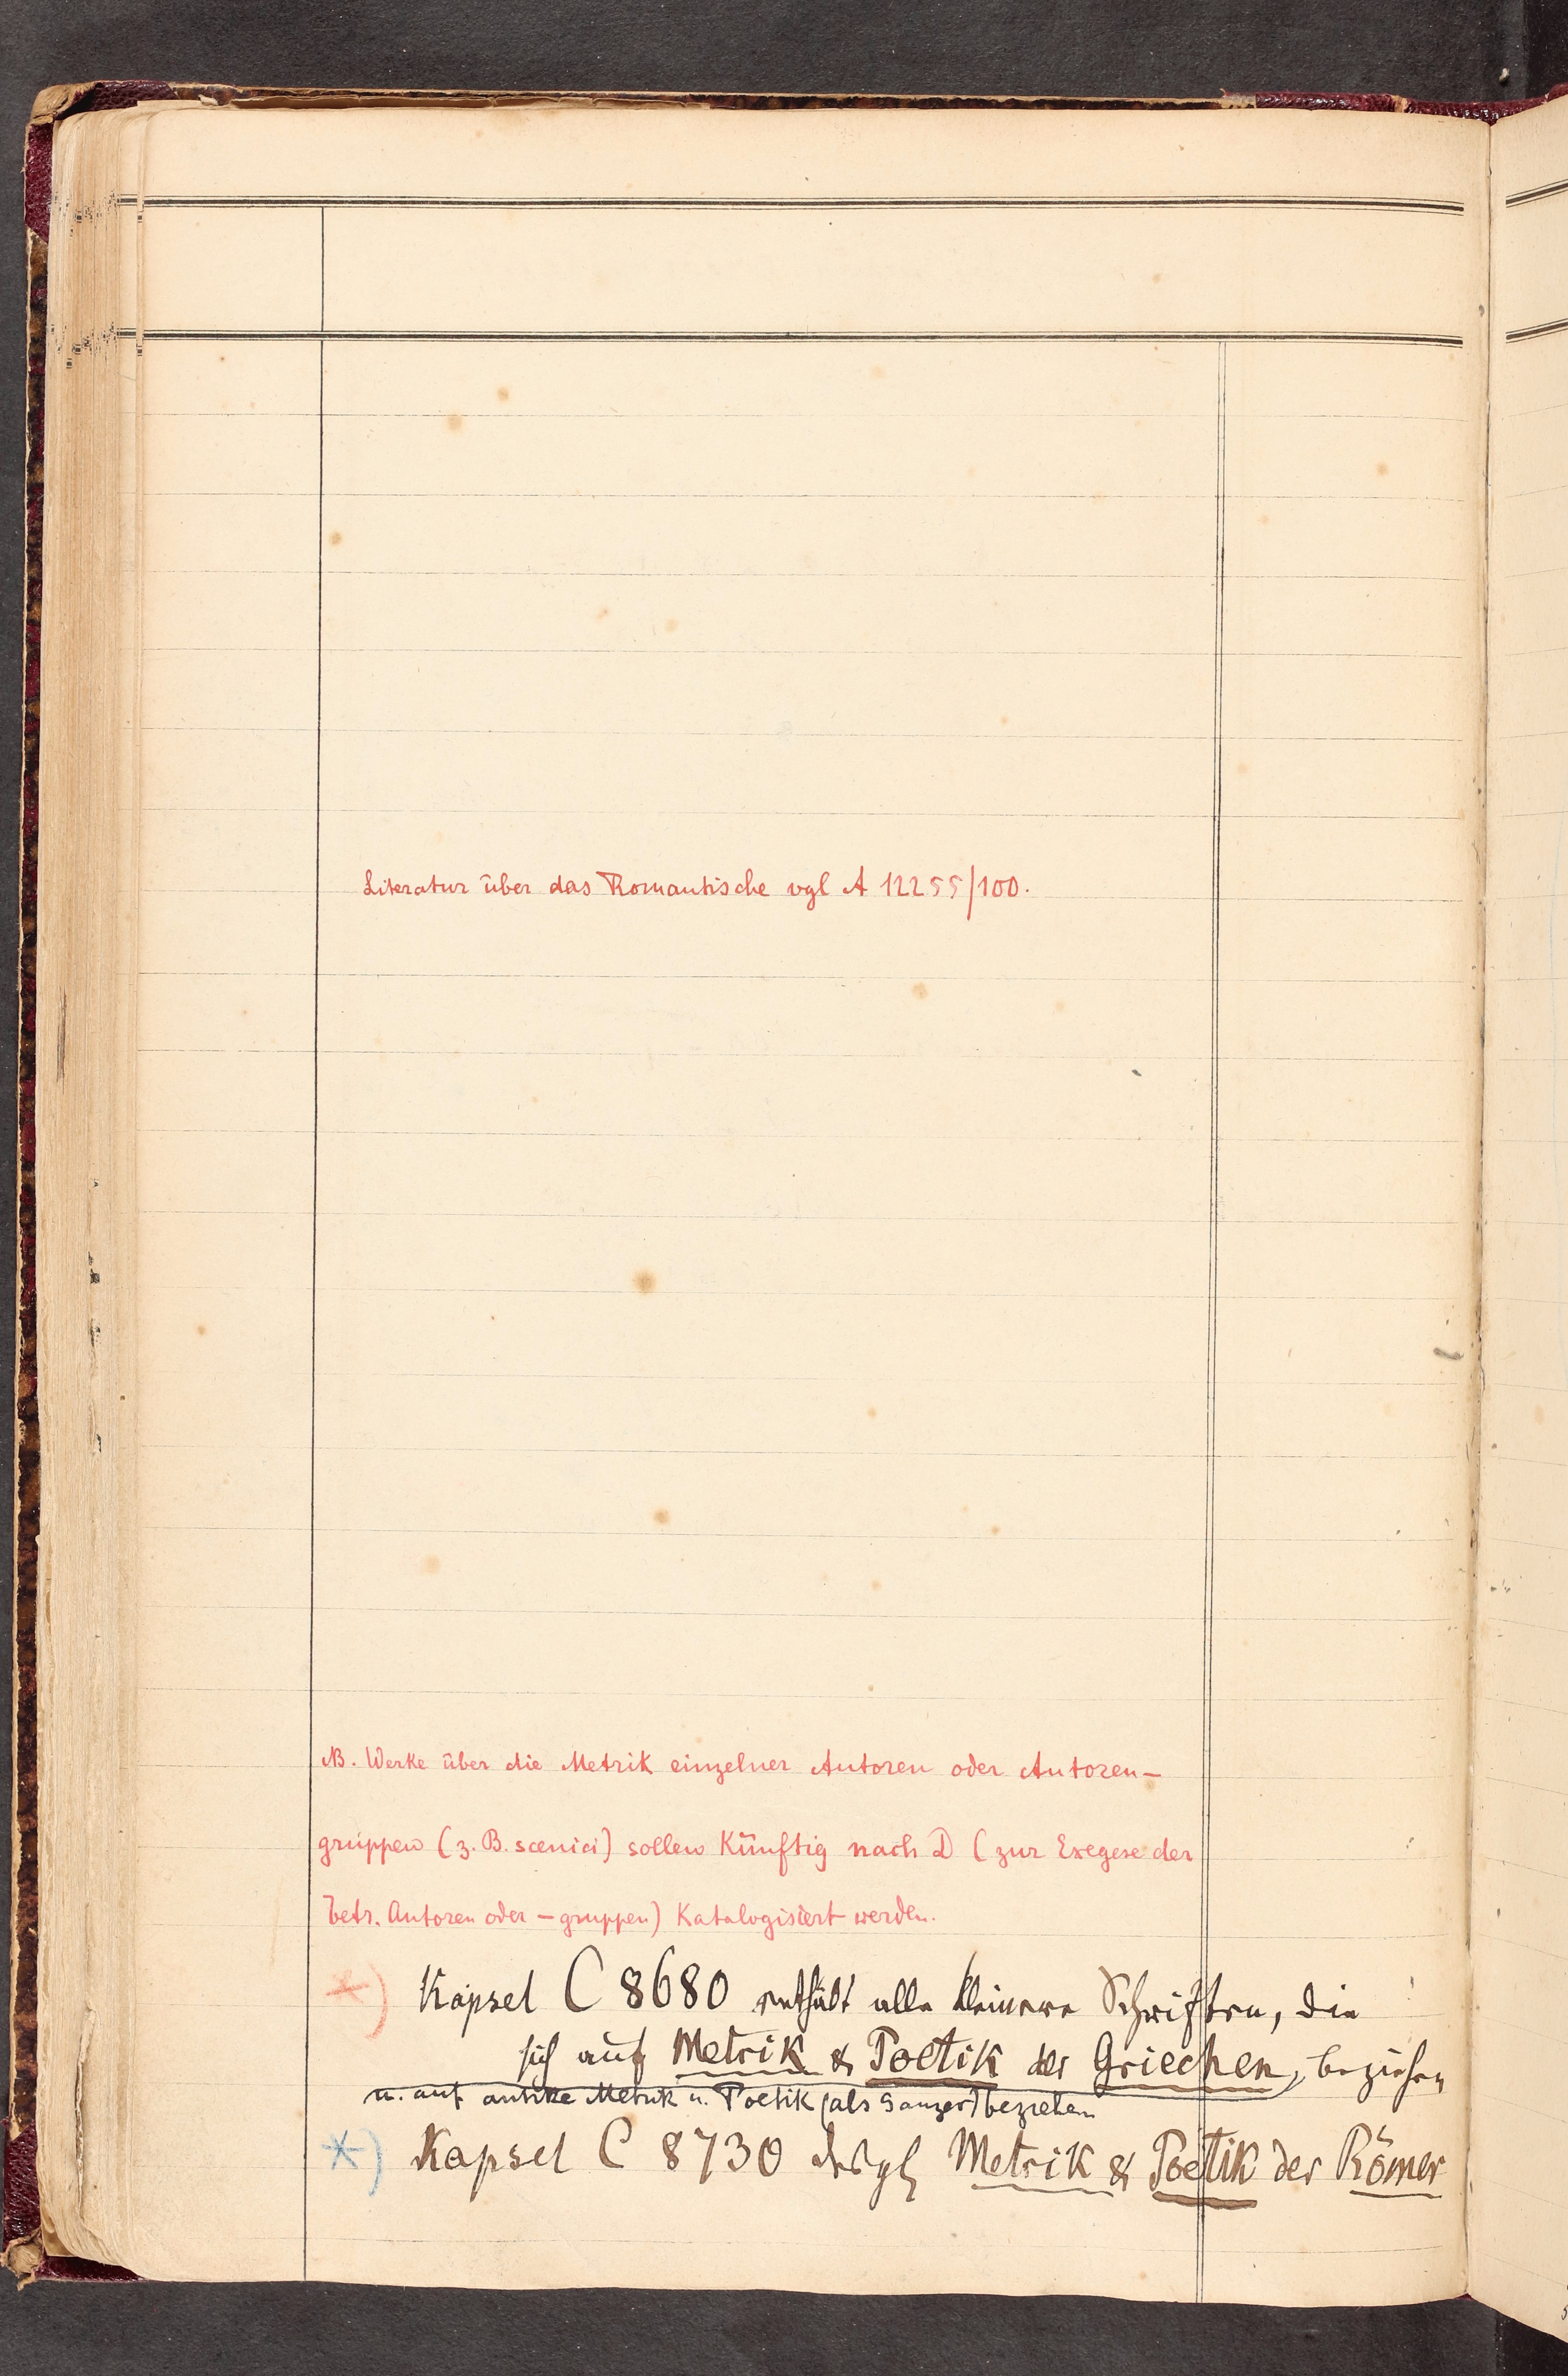 Literatur über das Romantische vgl A 12255/100.
NB. Werke über die Metrik einzelner Autoren oder Autoren-
gruppen (z. B. scenici) sollen künftig nach D (zur Exegese der
betr. Autoren oder -gruppen) Katalogisiert werden.
*) Kapsel C 8680 enthält alle kleinere Schriften, die
sich auf Metrik & Poetik der Griechen, beziehen
u. auf antike Metrik u. Poetik (als Ganzes) beziehen
*) Kapsel C 8730 desgl Metrik & Poetik der Römer